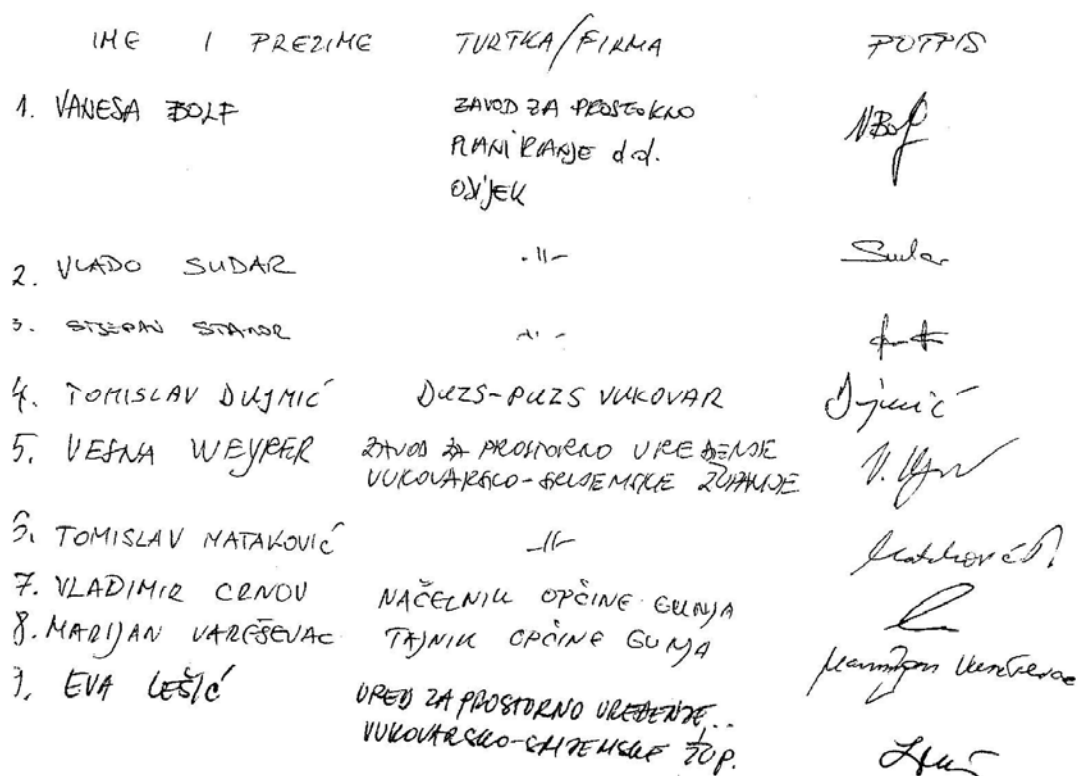 IME I PREZIME TVRTKA/FIRMA POTPIS
1. VANESA BOLF ZAVOD ZA PROSTORNO VBolf
PLANIRANJE d.d.
OSIJEK
2. VLADO SUDAR -II- Sudar
3. STJEPAN STANOR -II-
4. TOMISLAV DUJMIĆ DUZS-PUZS VUKOVAR Dujmić
5. VESNA WEYPER ZAVOD ZA PROSTORNO UREĐENJE
VUKOVARSKO-SRIJEMSKE ŽUPANIJE
6. TOMISLAV MATAKOVIĆ -II- Mataković T.
7. VLADIMIR CRNOV NAČELNIK OPĆINE GUNJA
8. MARIJAN VAREŠEVAC TAJNIK OPĆINE GUNJA Marijan Varešević
9. EVA LEŠIĆ URED ZA PROSTORNO UREĐENJE..
VUKOVARSKO-SRIJEMSKE ŽUP.